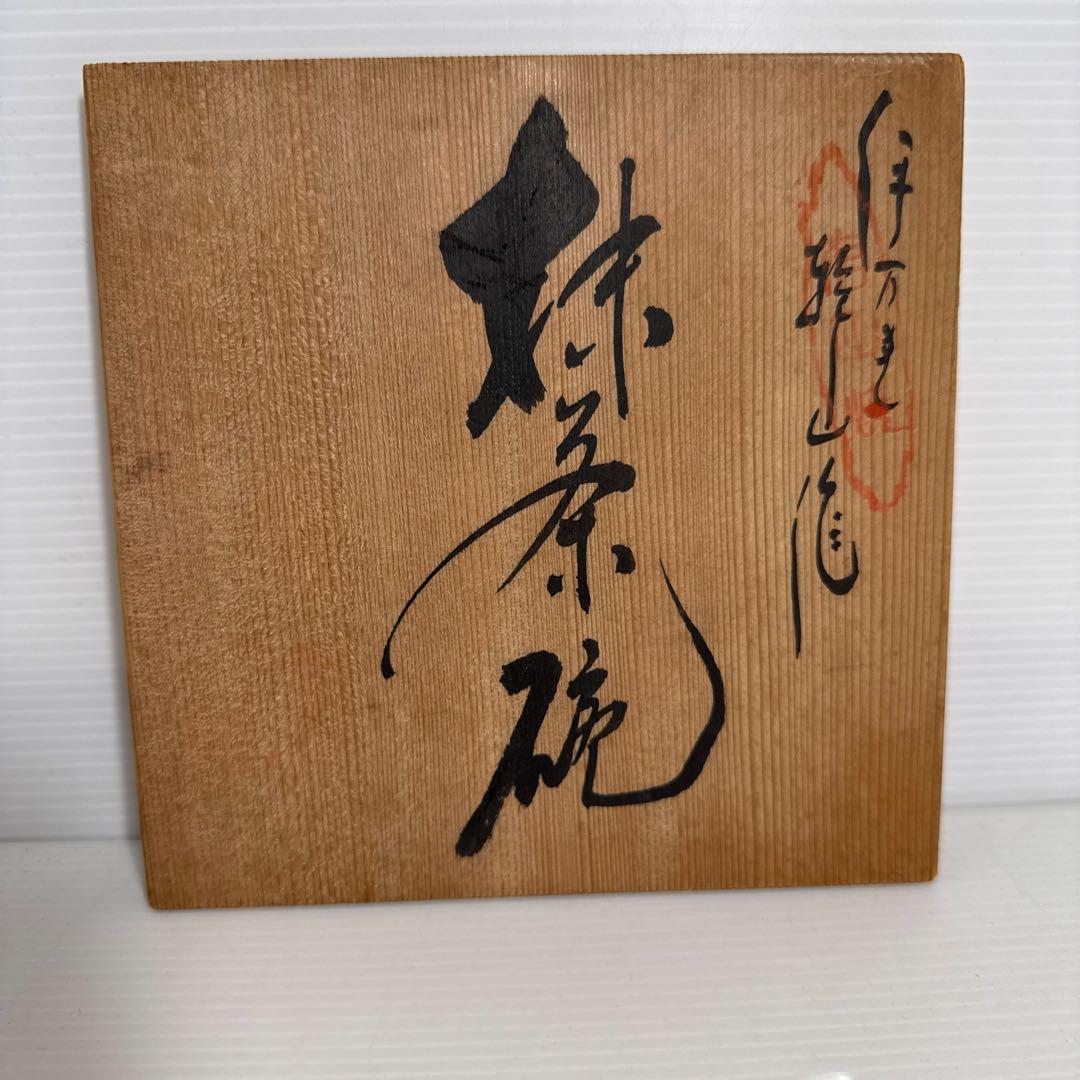 伊万里
山作
抹茶碗